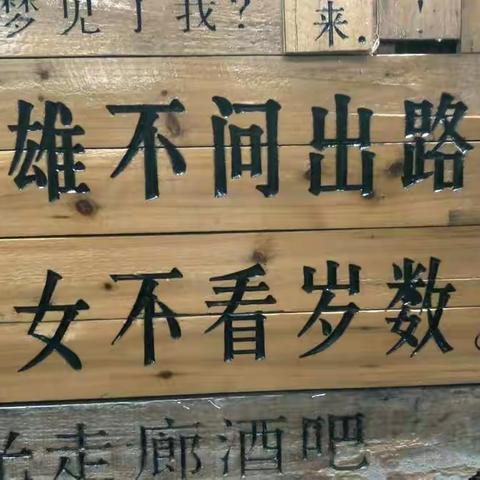 梦见了我？
来.
！
雄不问出路
女不看岁数。
走廊酒吧